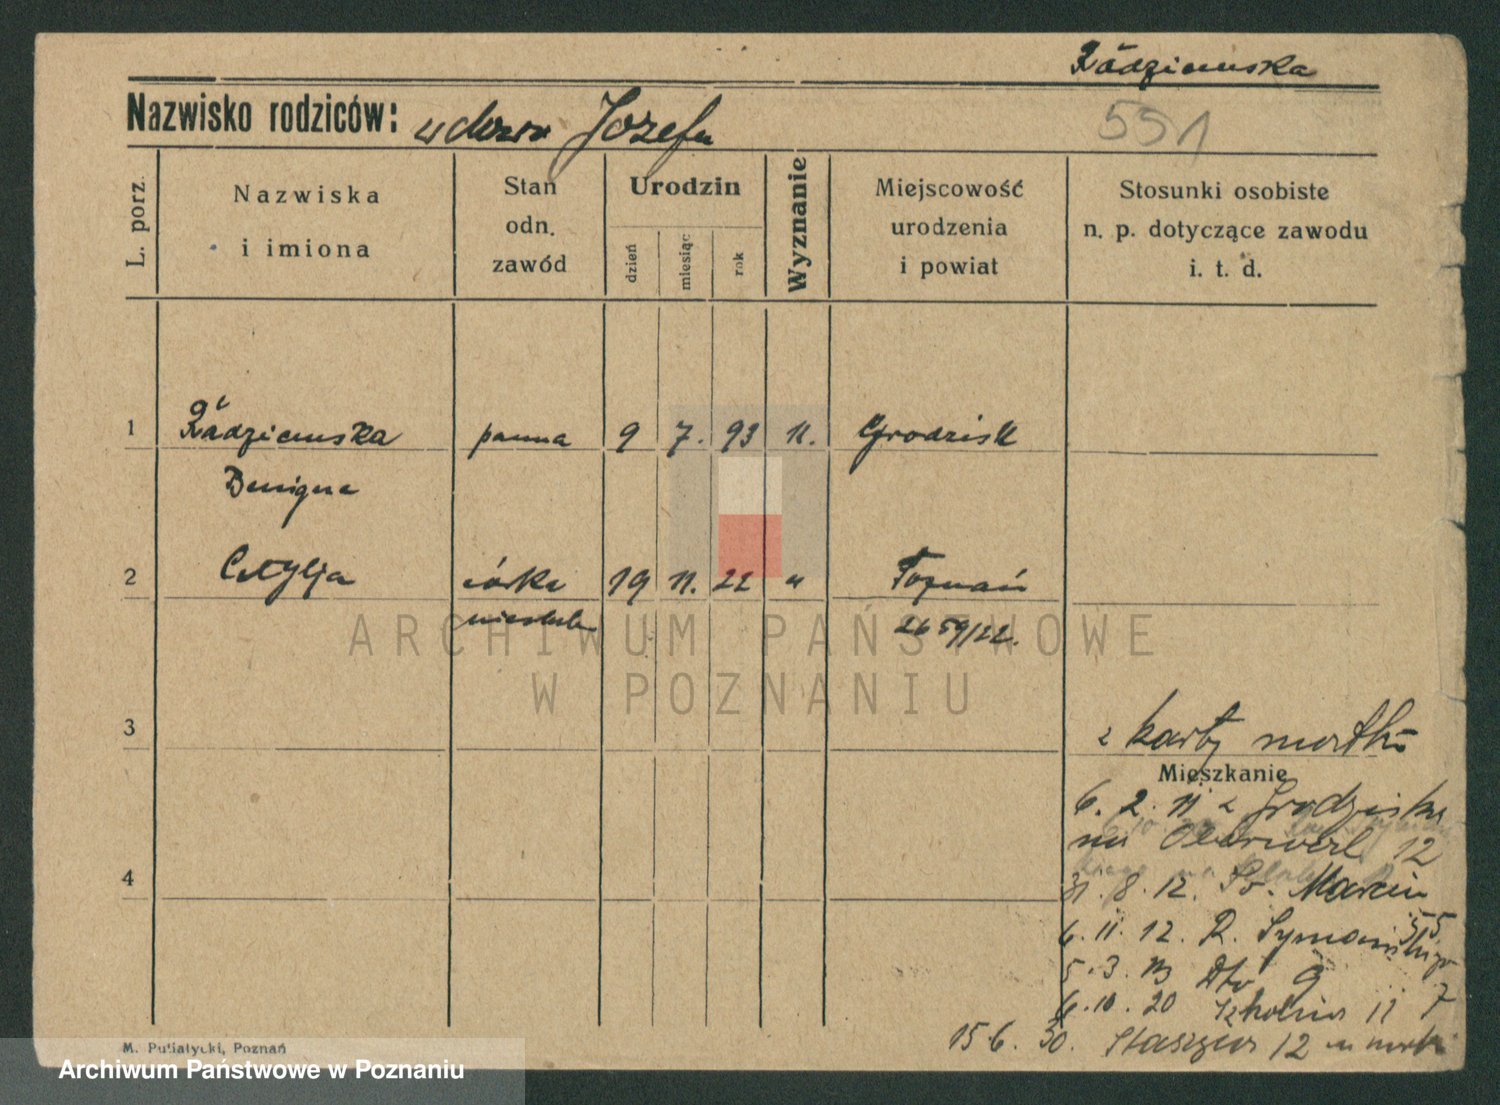 Rádziewska
Nazwisko rodziców: wdowa Józefa
551
L. porz.
Nazwiska
i imiona
Stan
odn.
zawód
Urodzin
dzień
miesiąc
rok
Wyznanie
Miejscowość
urodzenia
i powiat
Stosunki osobiste
n. p. dotyczące zawodu
i. t. d.
1 panna 9 7. 93 Grodzisk
Benigna
2 córka 19 11. 22 " Poznań
nieślub. 2659/22.
ARCHIWUM PAŃSTWOWE
W POZNANIU
3
z karty matki
Mieszkanie
6. 2. 11 z Grodziska
na Oberwall 12
4
31. 8. 12. Św. Marcin
55
6. 11. 12. R. Szymańskiego
5. 3. 13 Dto 9 7
6. 10. 20 Szkolna 11
15.6. 30. Staszica 12 u matki
M. Putiatycki, Poznań
Archiwum Państwowe w Poznaniu